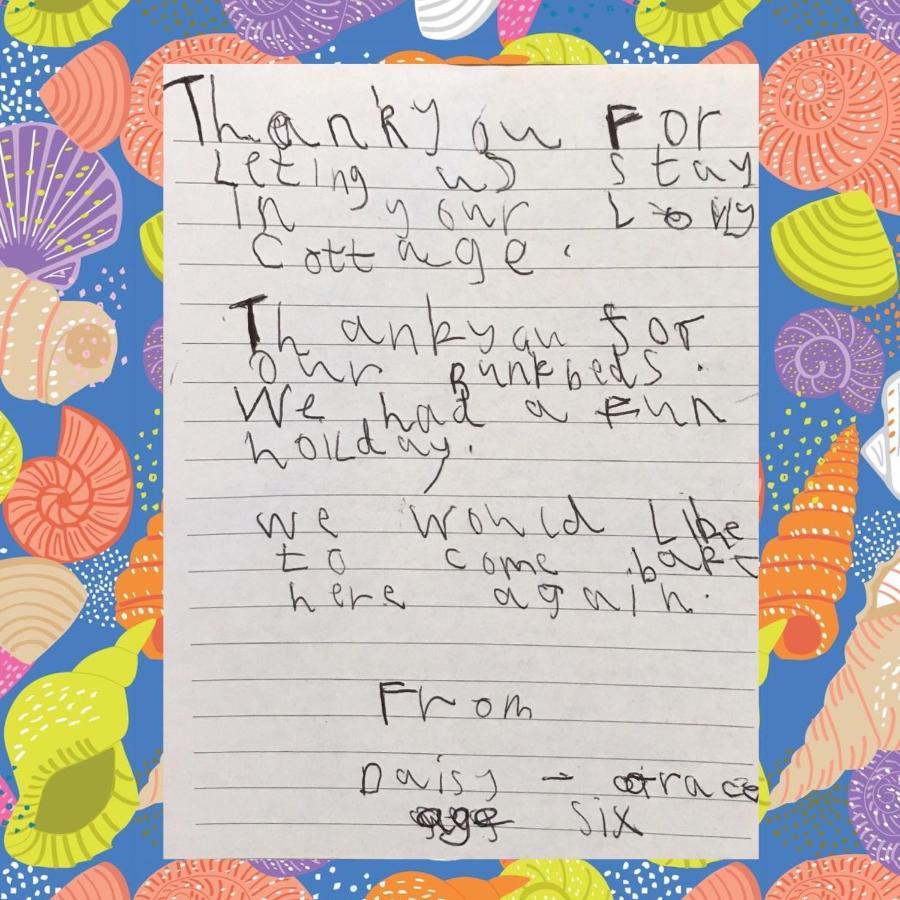 Thankyou For
Leting us stay
In your Lovly
Cottage.
Thankyou for
our Bunkbeds.
We had a Fun
holiday.
we would Like
to come back
here again.
From
Daisy - Grace
age six